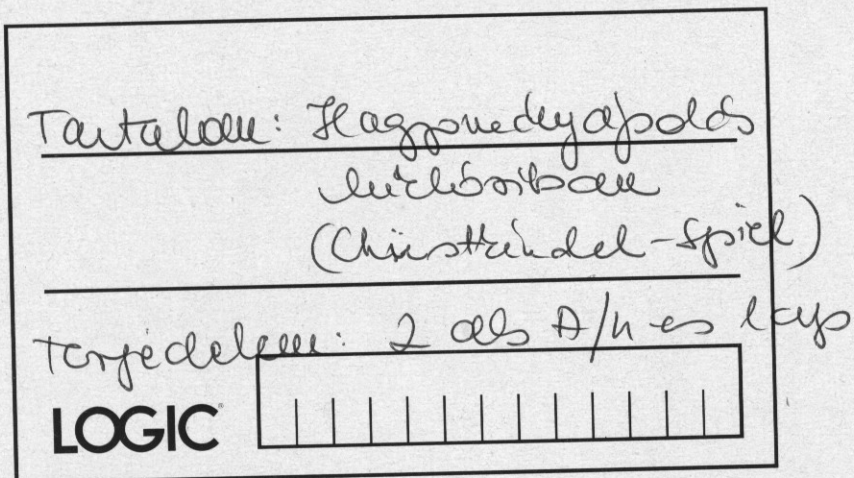 Tartalom: Hagyományápolás
Miklósiban
(Christkindel-Spiel)
Terjedelem: 2 db A/4-es lap
LOGIC